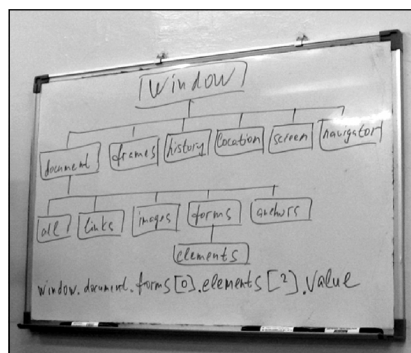 Window
document frames history location screen navigator
all links images forms anchors
elements
window.document.forms[0].elements[2].value